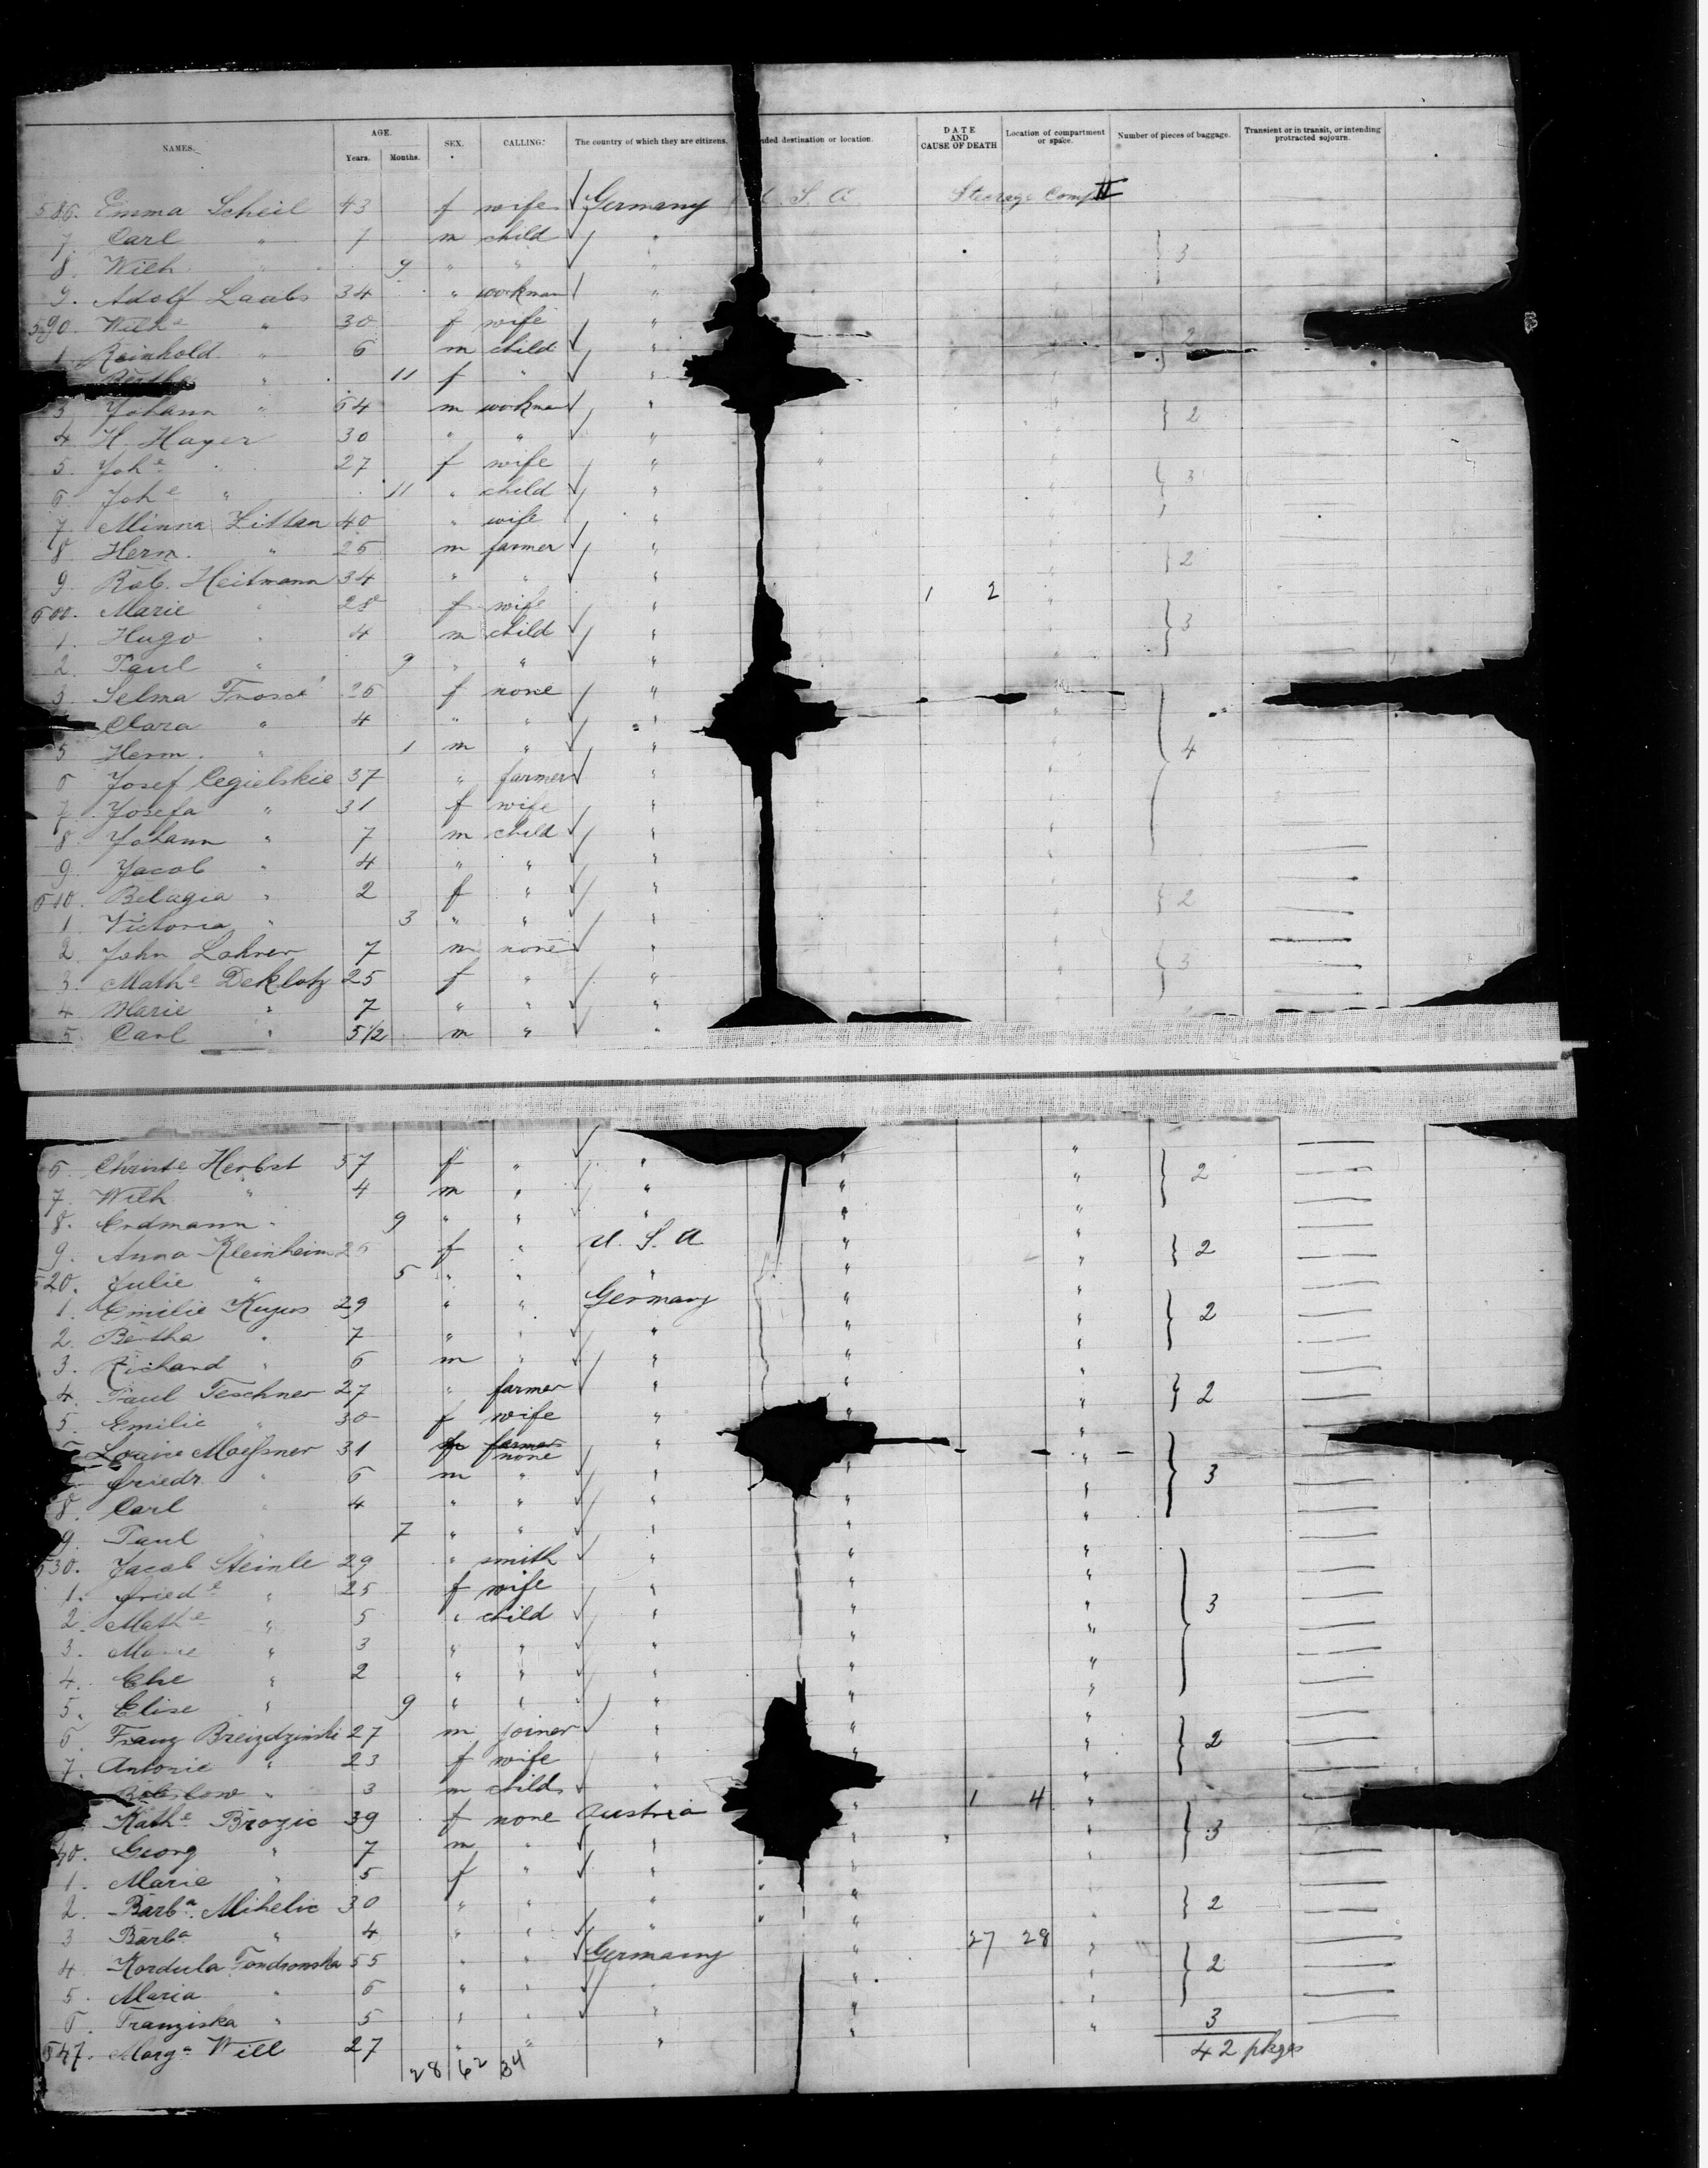 NAMES. AGE. Years. Months. SEX. CALLING. The country of which they are citizens. nded destination or location. DATE AND CAUSE OF DEATH Location of compartment or space. Number of pieces of baggage. Transient or in transit, or intending protracted sojourn.
586. Emma Scheil 43 f wife Germany U. S. A Steerage Comp II
7. Carl " 1 m child "
8. Wilh. " 9 " " " 3
9. Adolf Laabs 34 " workman "
590. Wilhe " 30 f wife "
1. Reinhold " 6 m child " 2
Bertha " 11 f " "
3. Johann " 64 m workman " 2
4. H. Hayer 30 " " "
5. Johe " 27 f wife " 3
6. Johe " 11 " child "
7. Minna Littan 40 " wife "
8. Herm. " 25 m farmer " 2
9. Rob. Heitmann 34 " " "
600. Marie " 28 f wife " 1 2
1. Hugo " 4 m child " 3
2. Paul " 9 " " "
3. Selma 26 f none "
Clara " 4 " " "
5 Herm. " 1 m " " 4
6 Josef Cegielskie 37 " farmer "
7. Josefa " 31 f wife "
8. Johann " 7 m child "
9. Jacob " 4 " " "
610. Belagia " 2 f " " 2
1. Victoria " 3 " " "
2. John Lohrer 7 m none "
3. Mathe Deklotz 25 f " " 3
4 Marie " 7 " " "
5. Carl " 5 1/2 m " "
6. Christe Herbst 57 f " " " " 2
7. Wilh " 4 m " " " "
8. Erdmann " 9 " " " " "
9. Anna Kleinheim 26 f " U. S. A " " 2
620. Julie " 5 " " " " "
1. Emilie Kujus 29 " " Germany " " 2
2. Bertha " 7 " " " " "
3. Richard " 6 m " " " "
4. Paul Teschner 27 " farmer " " " 2
5. Emilie " 30 f wife " " "
Louise Moessner 31 f farmer none " " "
friedr. " 6 m " " " " 3
8. Carl " 4 " " " " "
9. Paul " 7 " " " " "
630. Jacob Steinle 29 " smith " " "
1. friede " 25 f wife " " "
2. Mathe " 5 " child " " " 3
3. Marie " 3 " " " " "
4. Else " 2 " " " " "
5. Elise " 9 " " " " "
6 Franz Breizdzinski 27 m joiner " " " 2
7. Antonie " 23 f wife " " "
Boleslaw " 3 m child " " 1 4 "
Kathe Brozic 39 f none Austria " " 3
40. Georg " 7 m " " " "
1. Marie " 5 f " " " "
2. Barba. Mihelic 30 " " " " " 2
3 Barba " 4 " " " " 27 28 "
4. Kordula Tondronska 55 " " Germany " " 2
5. Maria " 6 " " " " "
6. Franziska " 5 " " " " " 3
647. Marga Will 27 " " " 42 pkgs
28 62 34